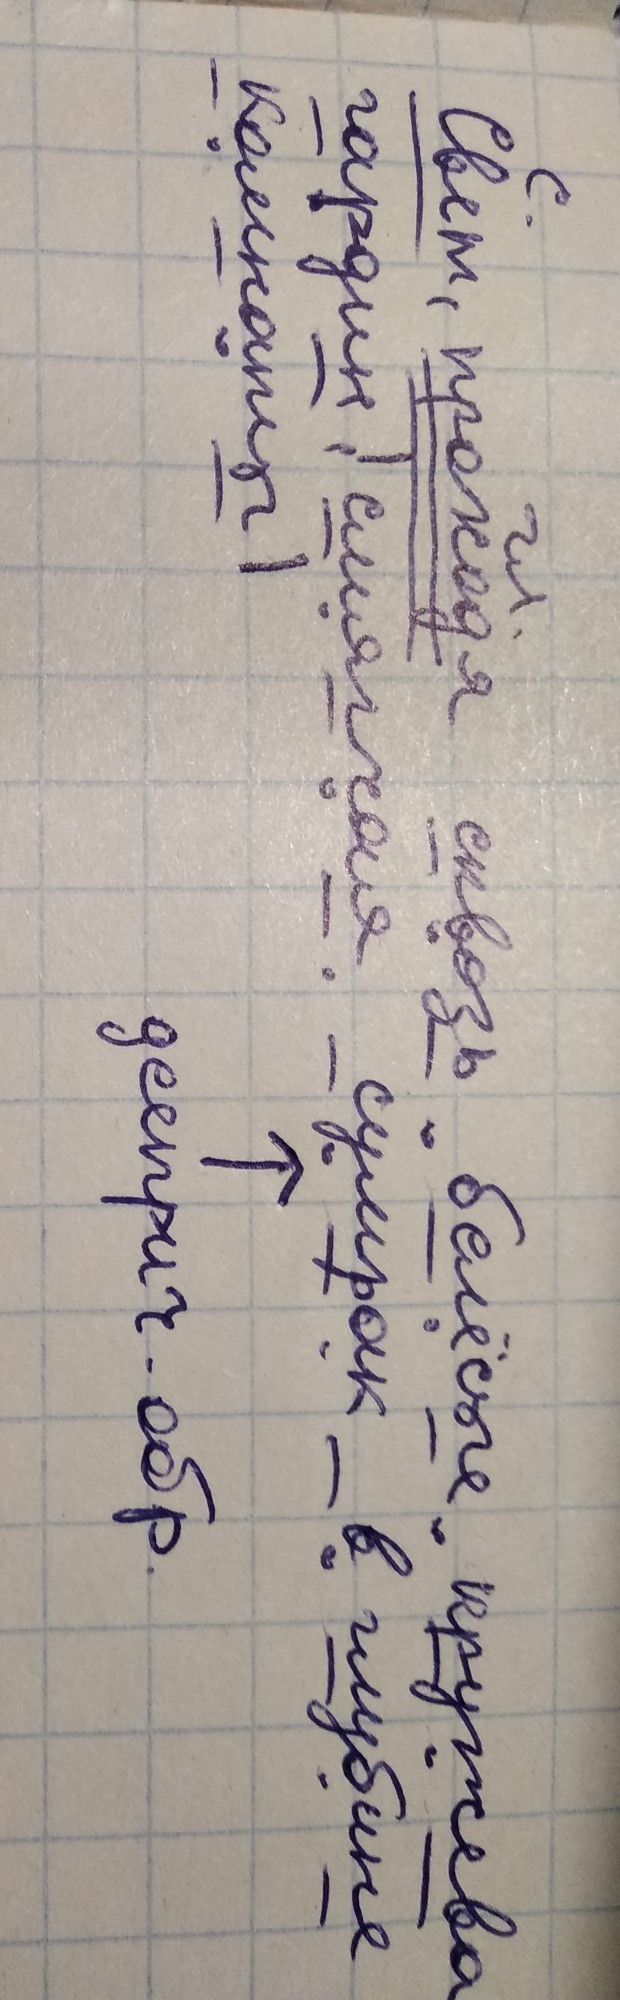 С. гл.
Свет, проходя сквозь белёсые кружева
гардин, смягчая сумрак в глубине
комнаты
дееприч. обр.